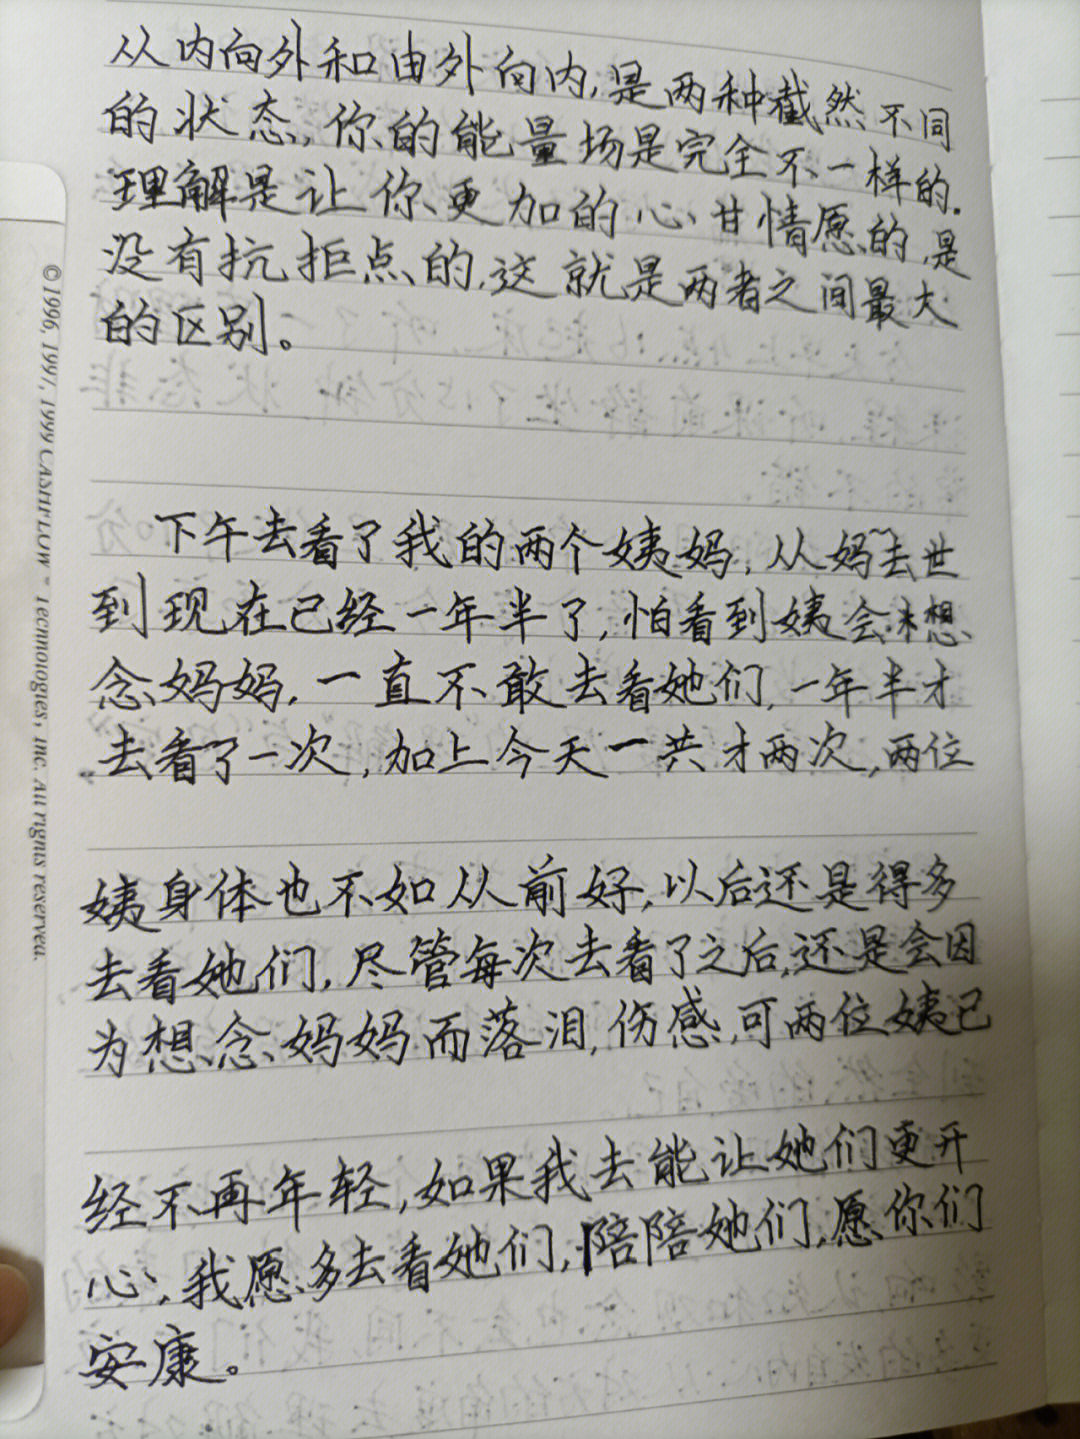 从内向外和由外向内,是两种截然不同
的状态,你的能量场是完全不一样的.
理解是让你更加的心甘情愿的,是
没有抗拒点的,这就是两者之间最大
的区别。
下午去看了我的两个姨妈,从妈去世
到现在已经一年半了,怕看到姨会想
念妈妈,一直不敢去看她们,一年半才
去看了一次,加上今天一共才两次,两位
姨身体也不如从前好,以后还是得多
去看她们,尽管每次去看了之后,还是会因
为想念妈妈而落泪,伤感,可两位姨已
经不再年轻,如果我去能让她们更开
心,我愿多去看她们,陪陪她们,愿你们
安康。
©1996, 1997, 1999 CASHFLOW Technologies, Inc. All rights reserved.